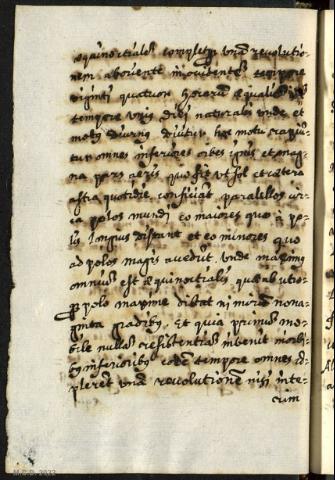 æquinoctiales complet unã revolutio-
nem ab oriente in occidentẽ tempore
viginti quatuor horarum æqualium
tempore unius diei naturalis unde et
motus diurnus dicitur hoc motu rapiun-
tur omnes inferiores orbes ignis et mag-
na pars aeris quo fit ut sol et cætera
astra quotidie conficiant parallelos cir-
ca polos mundi eo maiores quo à po-
lis longius distant et eo minores quo
ad polos magis accedũt, unde maximus
omniũ est æquinoctialis
polo maxime distat ni mirũ nona-
ginta gradibus. Et quia primũ mo-
bile nullã resistentiam invenit in orbi-
bus inferioribus eodẽ tempore omnes cõ-
pleret unã revolutionẽ nisi inte-
rum